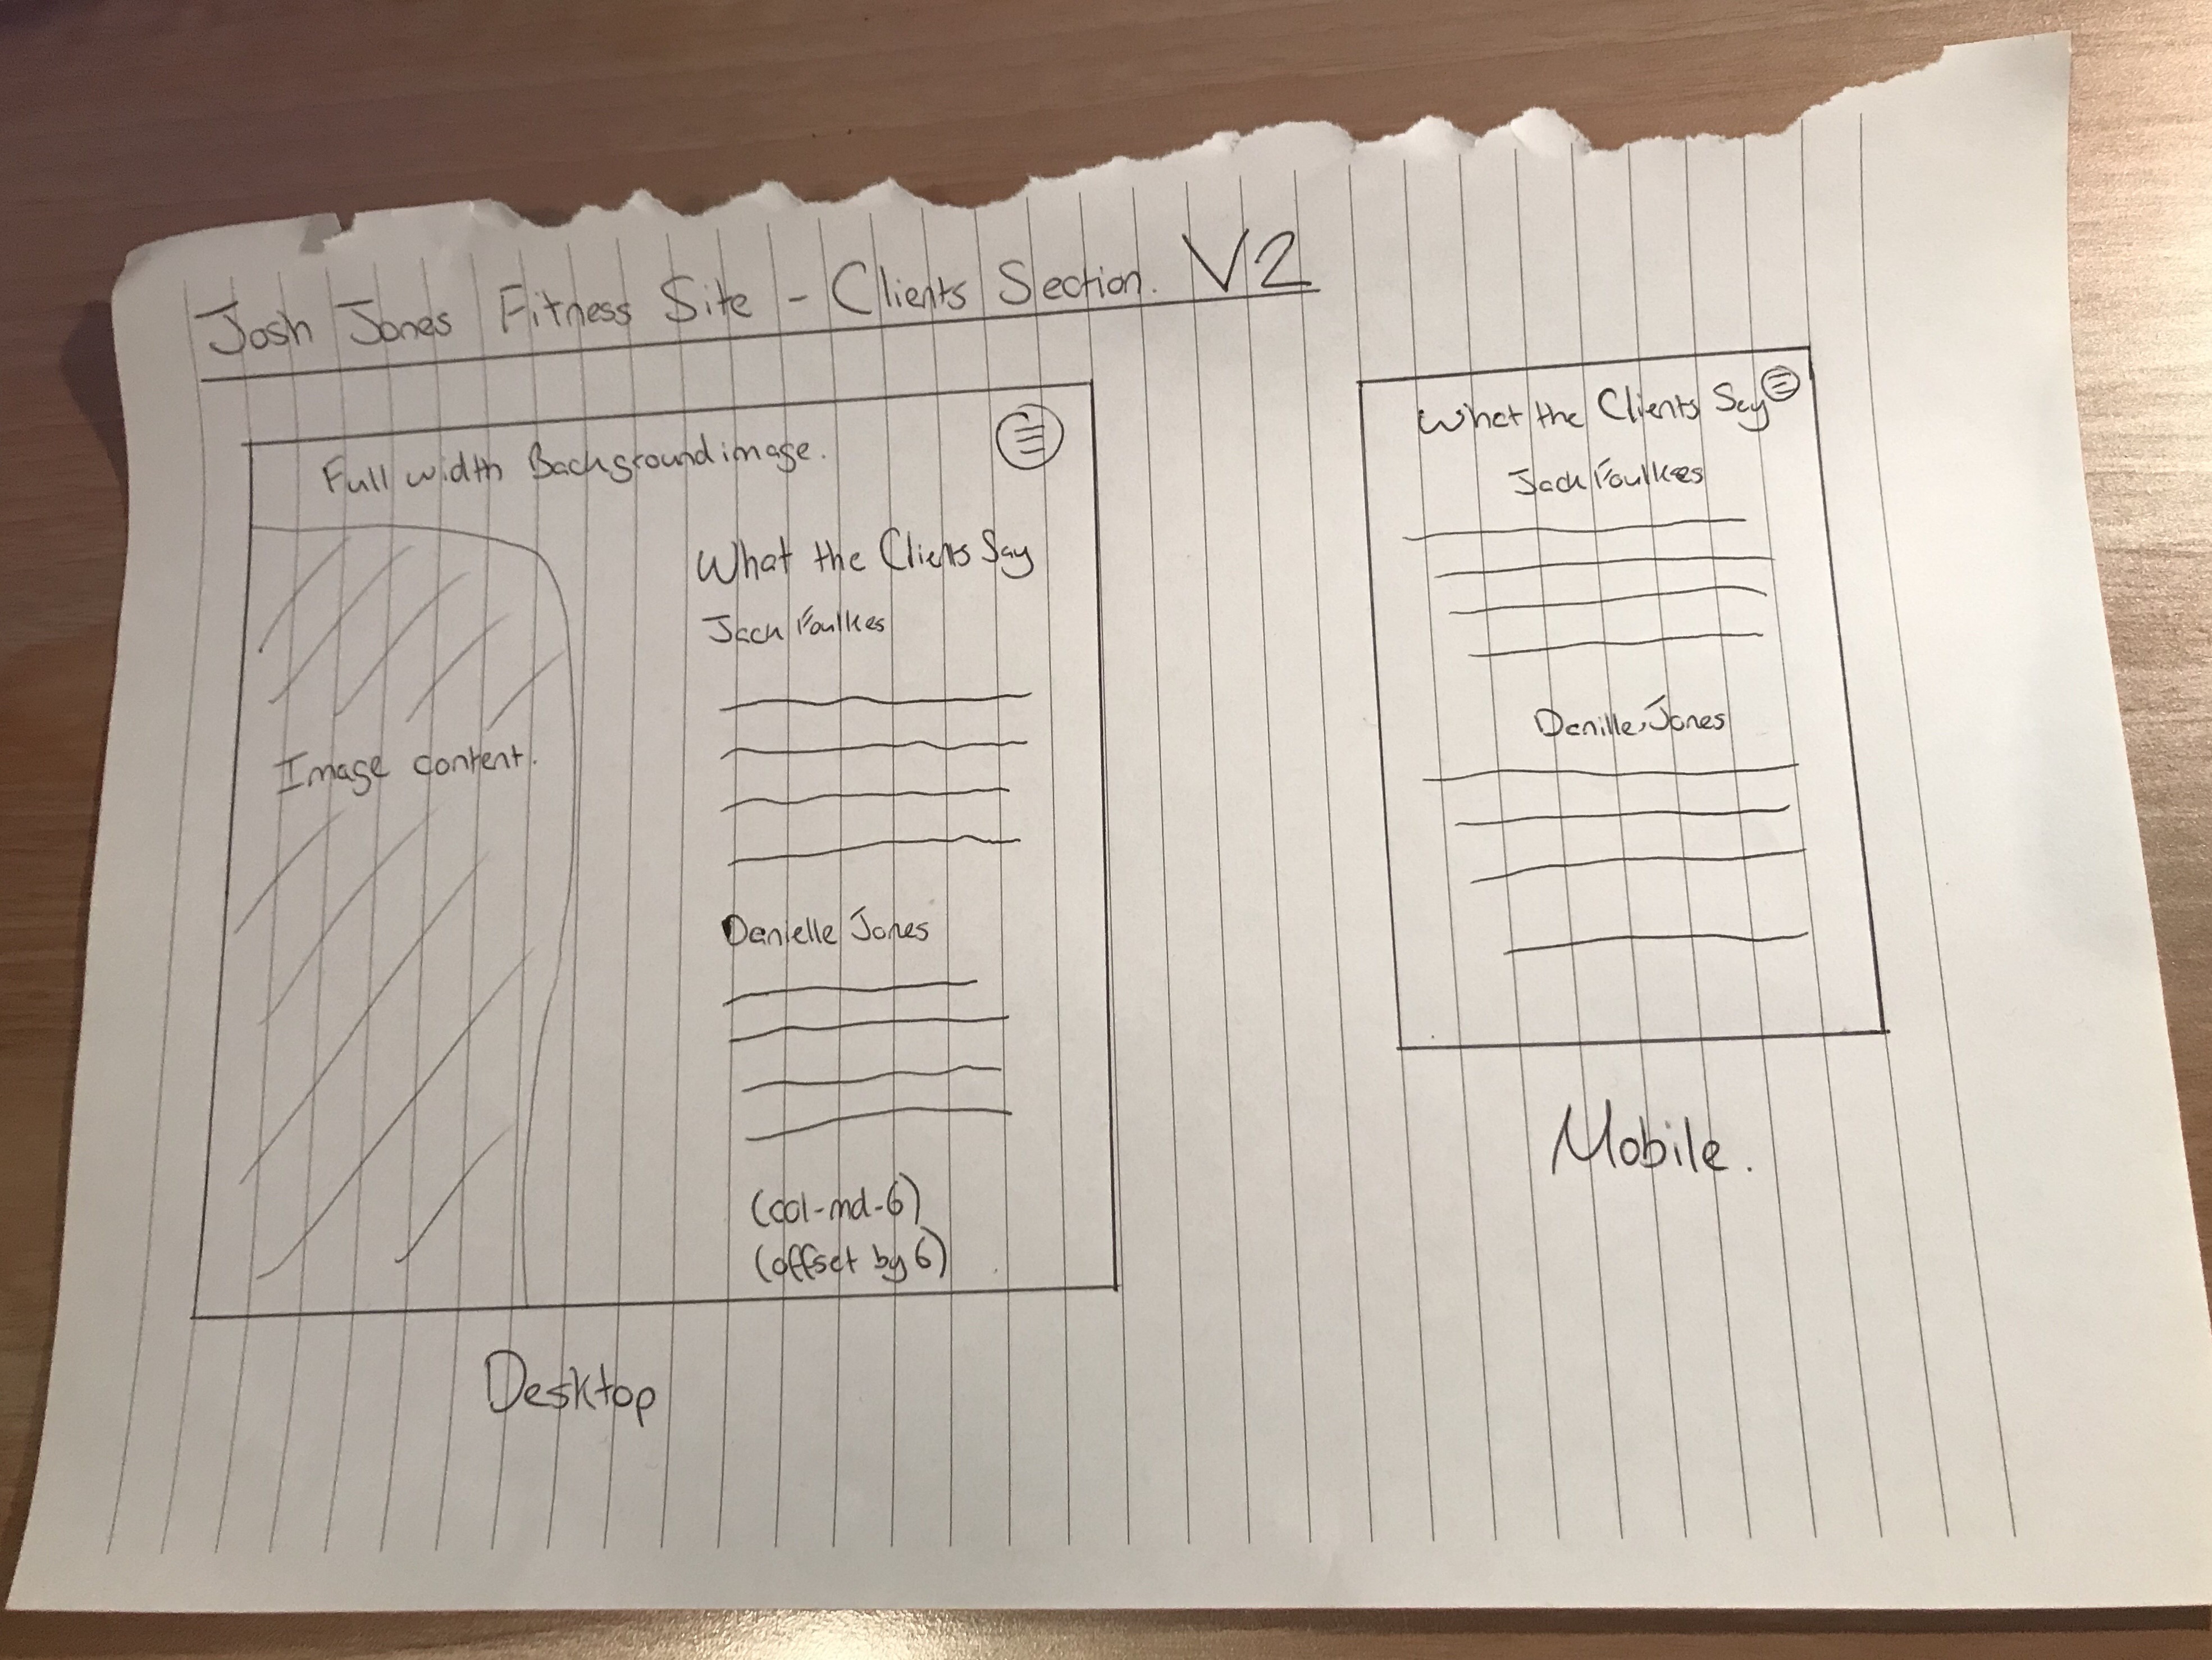 Josh Jones Fitness Site - Clients Section. V2
Full width Background image.
What the Clients Say
Jack Foulkes
Image content.
Danielle Jones
(col-md-6)
(offset by 6)
Desktop
What the Clients Say
Jack Foulkes
Danille Jones
Mobile.